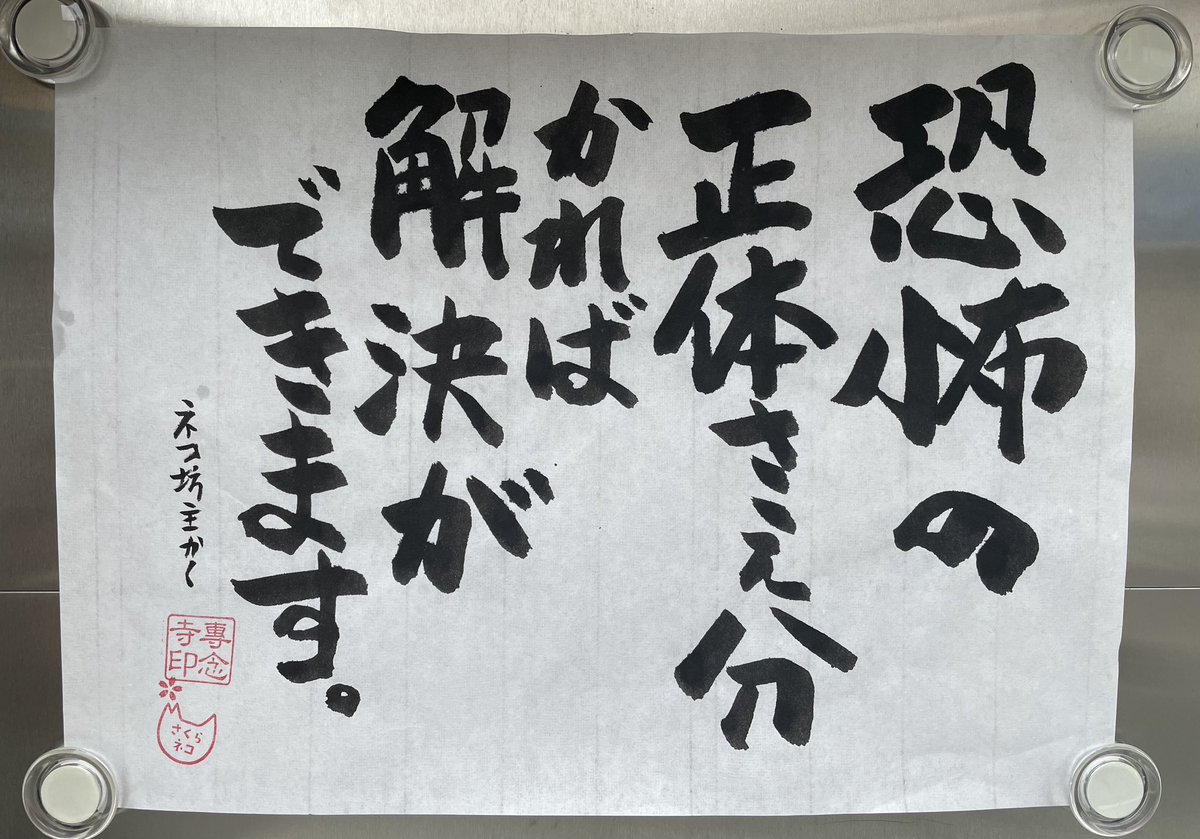 恐怖の
正体さえ分
かれば
解決が
できます。
ネコ坊主かく
專念
寺印
さくら
ネコ